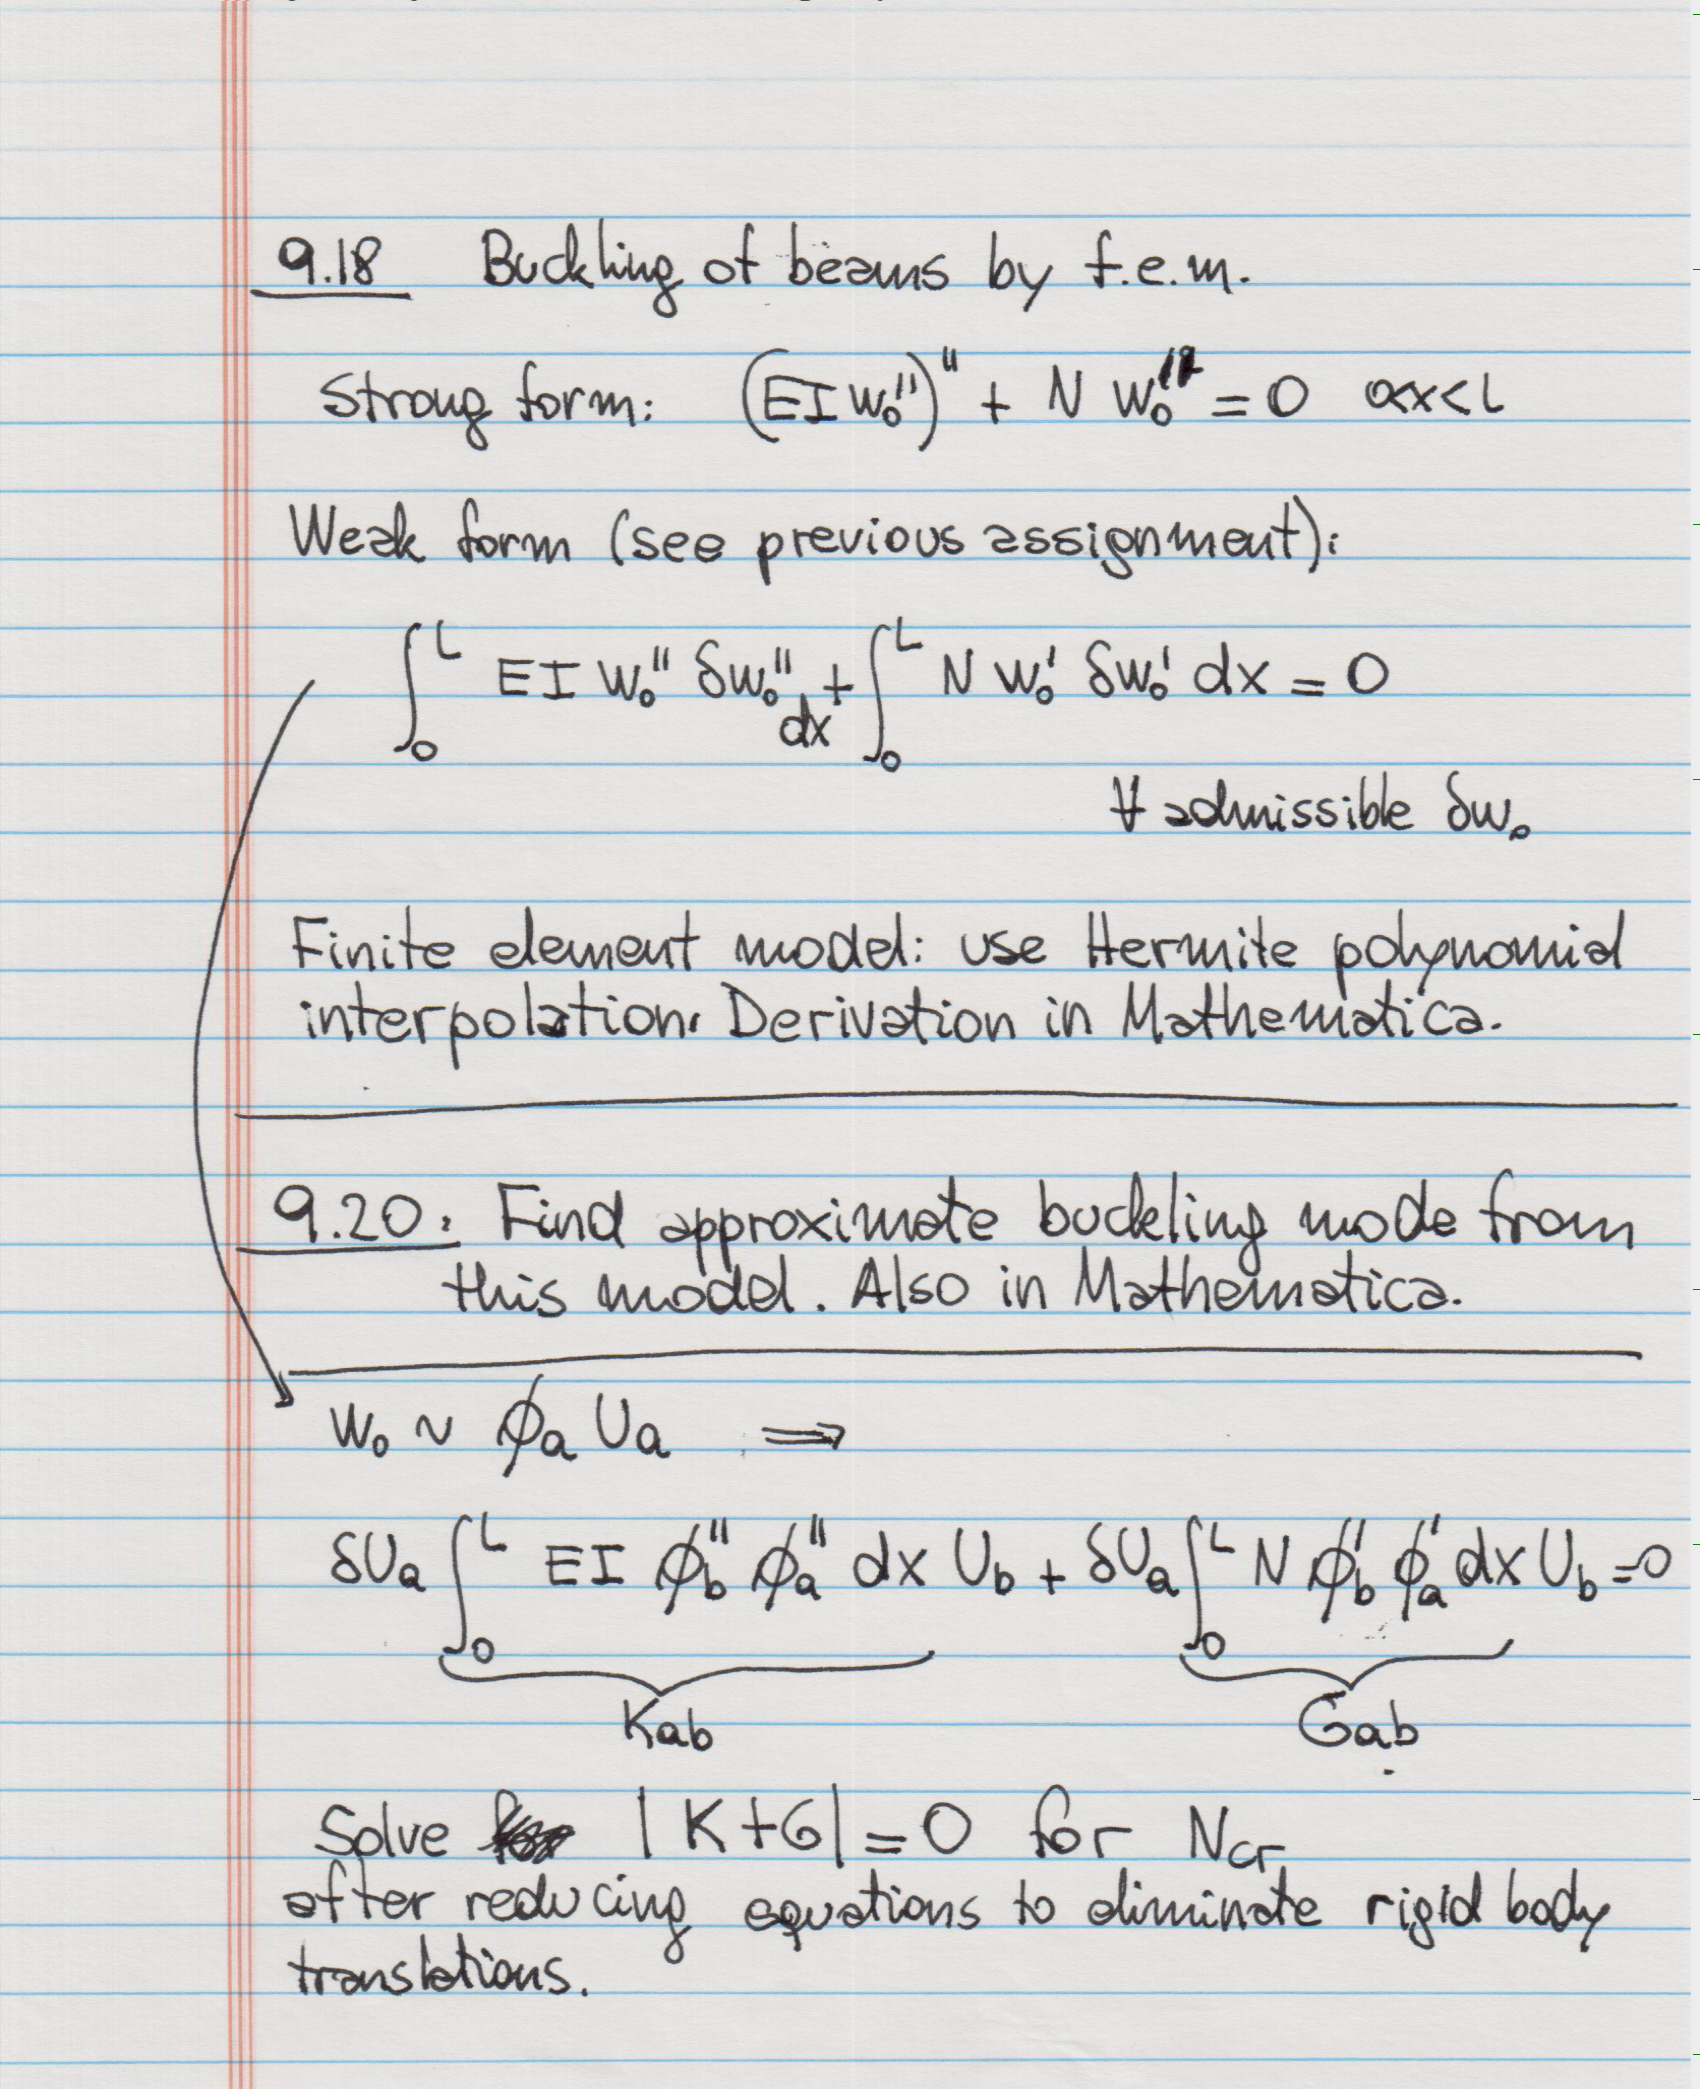 9.18 Buckling of beams by f.e.m.
Strong form: (EI w₀'')'' + N w₀'' = 0 0<x<L
Weak form (see previous assignment):
∫₀ᴸ EI w₀'' δw₀'' dx + ∫₀ᴸ N w₀' δw₀' dx = 0
∀ admissible δw₀
Finite element model: use Hermite polynomial
interpolation. Derivation in Mathematica.
9.20: Find approximate buckling mode from
this model. Also in Mathematica.
w₀ ~ ϕₐ Uₐ ⇒
δUₐ ∫₀ᴸ EI ϕb'' ϕₐ'' dx Ub + δUₐ ∫₀ᴸ N ϕb' ϕₐ' dx Ub = 0
Kab Gab
Solve |K+G| = 0 for Ncr
after reducing equations to eliminate rigid body
translations.